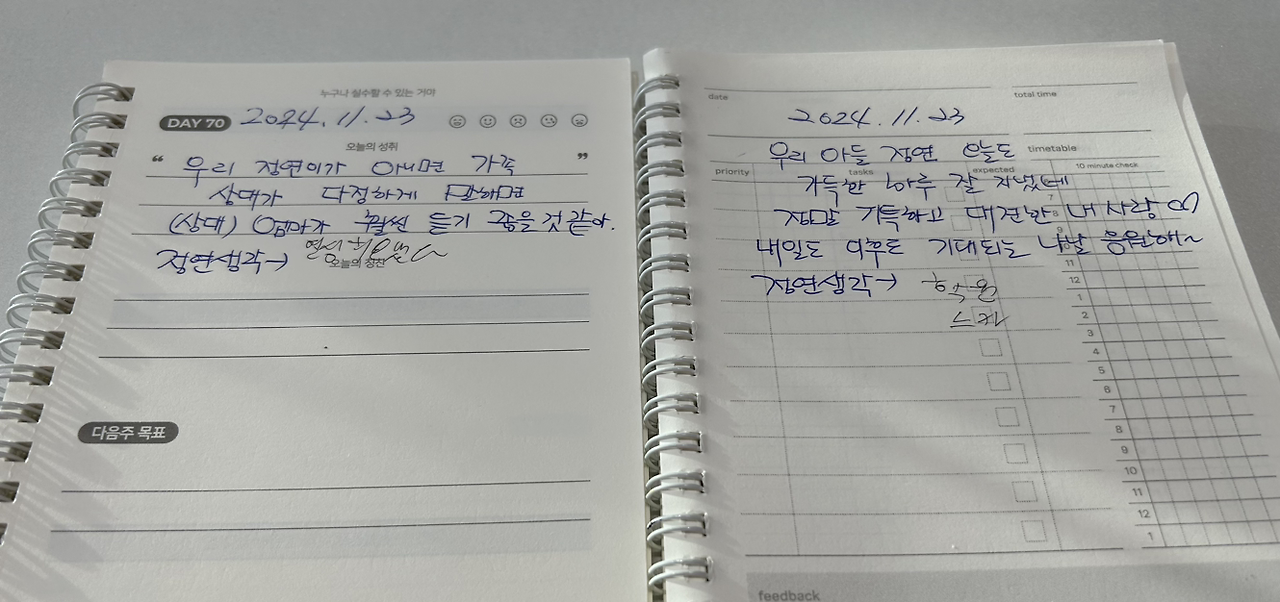 누구나 실수할 수 있는 거야
DAY 70 2024.11.23
오늘의 성취
“ 우리 정연이가 아니면 가족 ”
상대가 다정하게 말하면
(상대) 엄마가 훨씬 듣기 좋을것 같아.
정연생각→ 열심히
오늘의 칭찬
다음주 목표
date
total time
2024.11.23
우리 아들 정연 오늘도
timetable
priority
tasks
expected
10 minute check
가득한 하루 잘 지냈네
정말 기특하고 대견한 내 사랑
내일도 이후도 기대되는 나날 응원해~
정연생각→
11
12
1
2
3
4
5
6
7
8
9
10
11
12
1
feedback